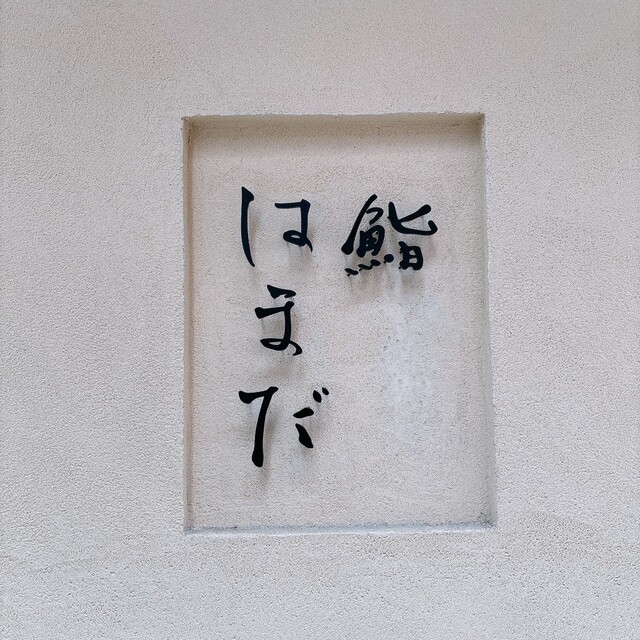 鮨
はまだ